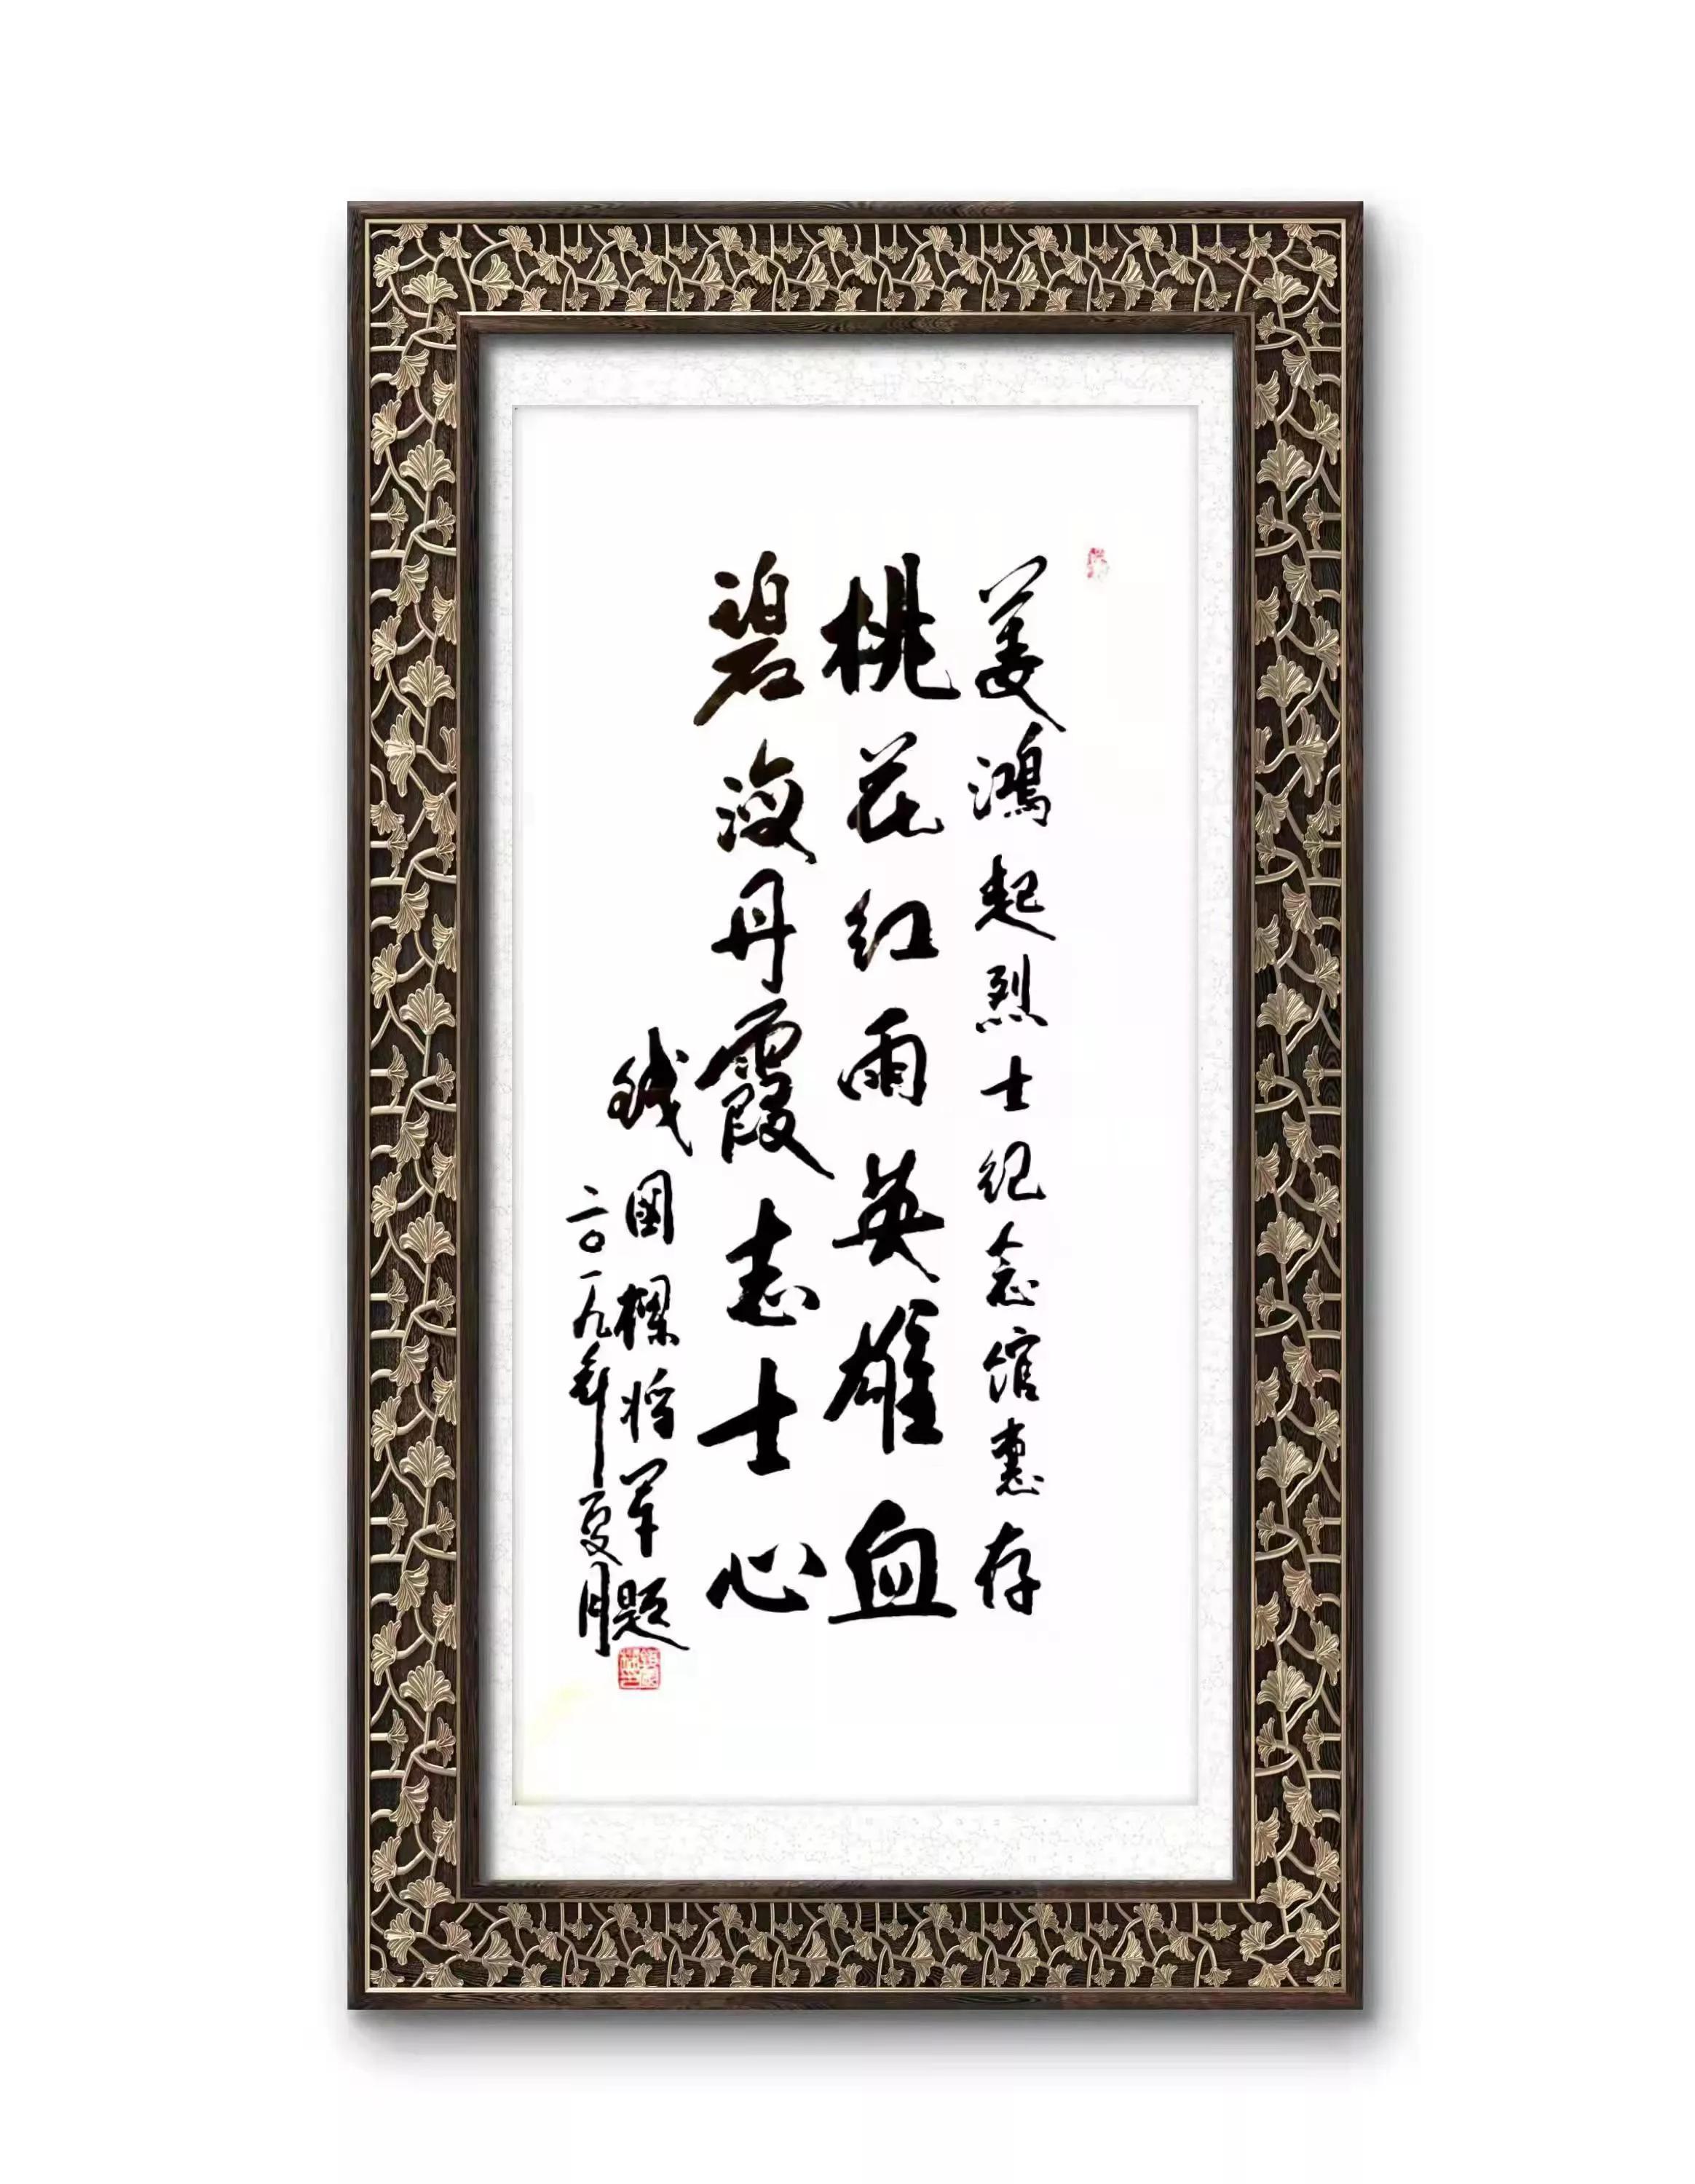 姜鴻起烈士纪念馆惠存
桃花红雨英雄血
碧海丹霞志士心
钱國樑将军题
二〇一九年夏月